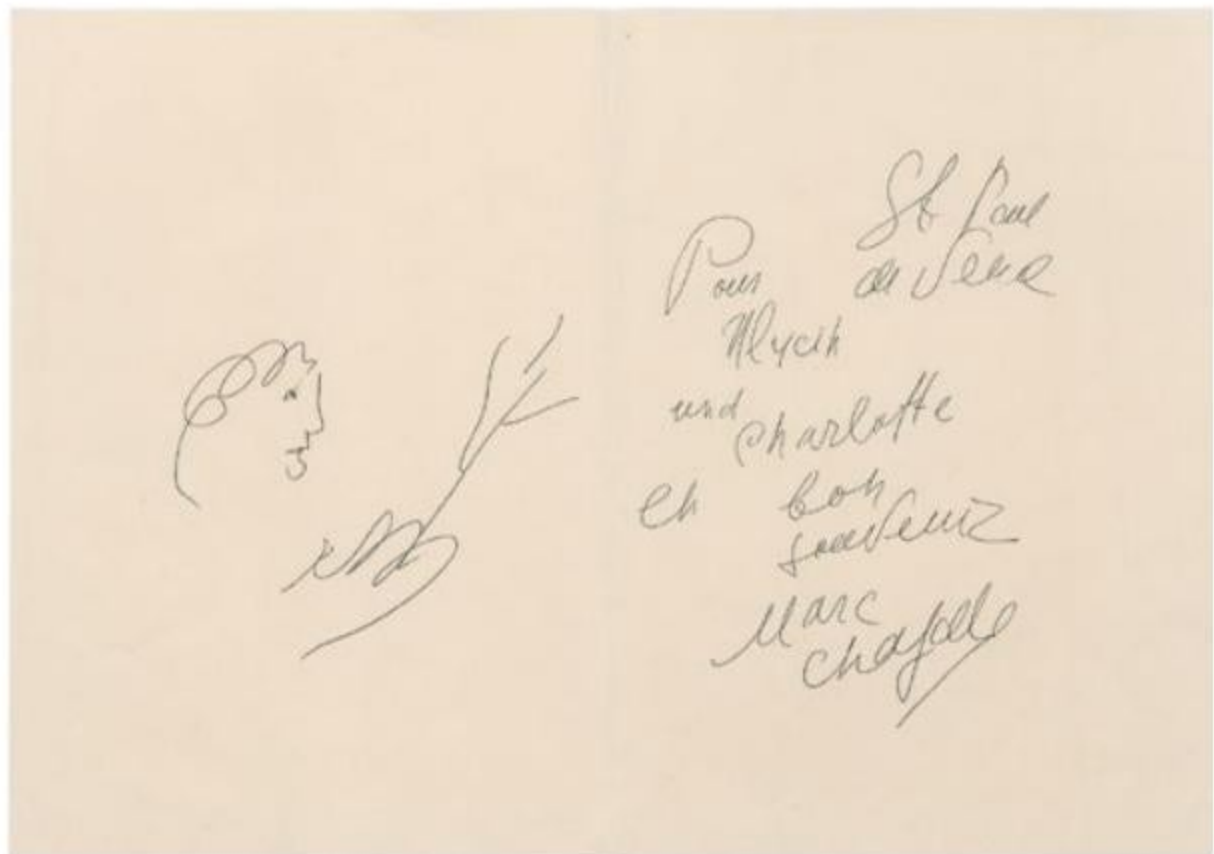 St Paul
de Vence
Pour
und Charlotte
en bon
souvenir
Marc
Chagall